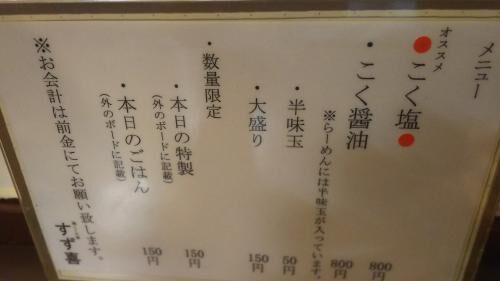 メニュー
オススメ
●こく塩● 800円
・こく醤油 800円
※らーめんには半味玉が入っています。
・半味玉 50円
・大盛り 150円
・数量限定
・本日の特製 150円
(外のボードに記載)
・本日のごはん 150円
(外のボードに記載)
※お会計は前金にてお願い致します。
すず喜